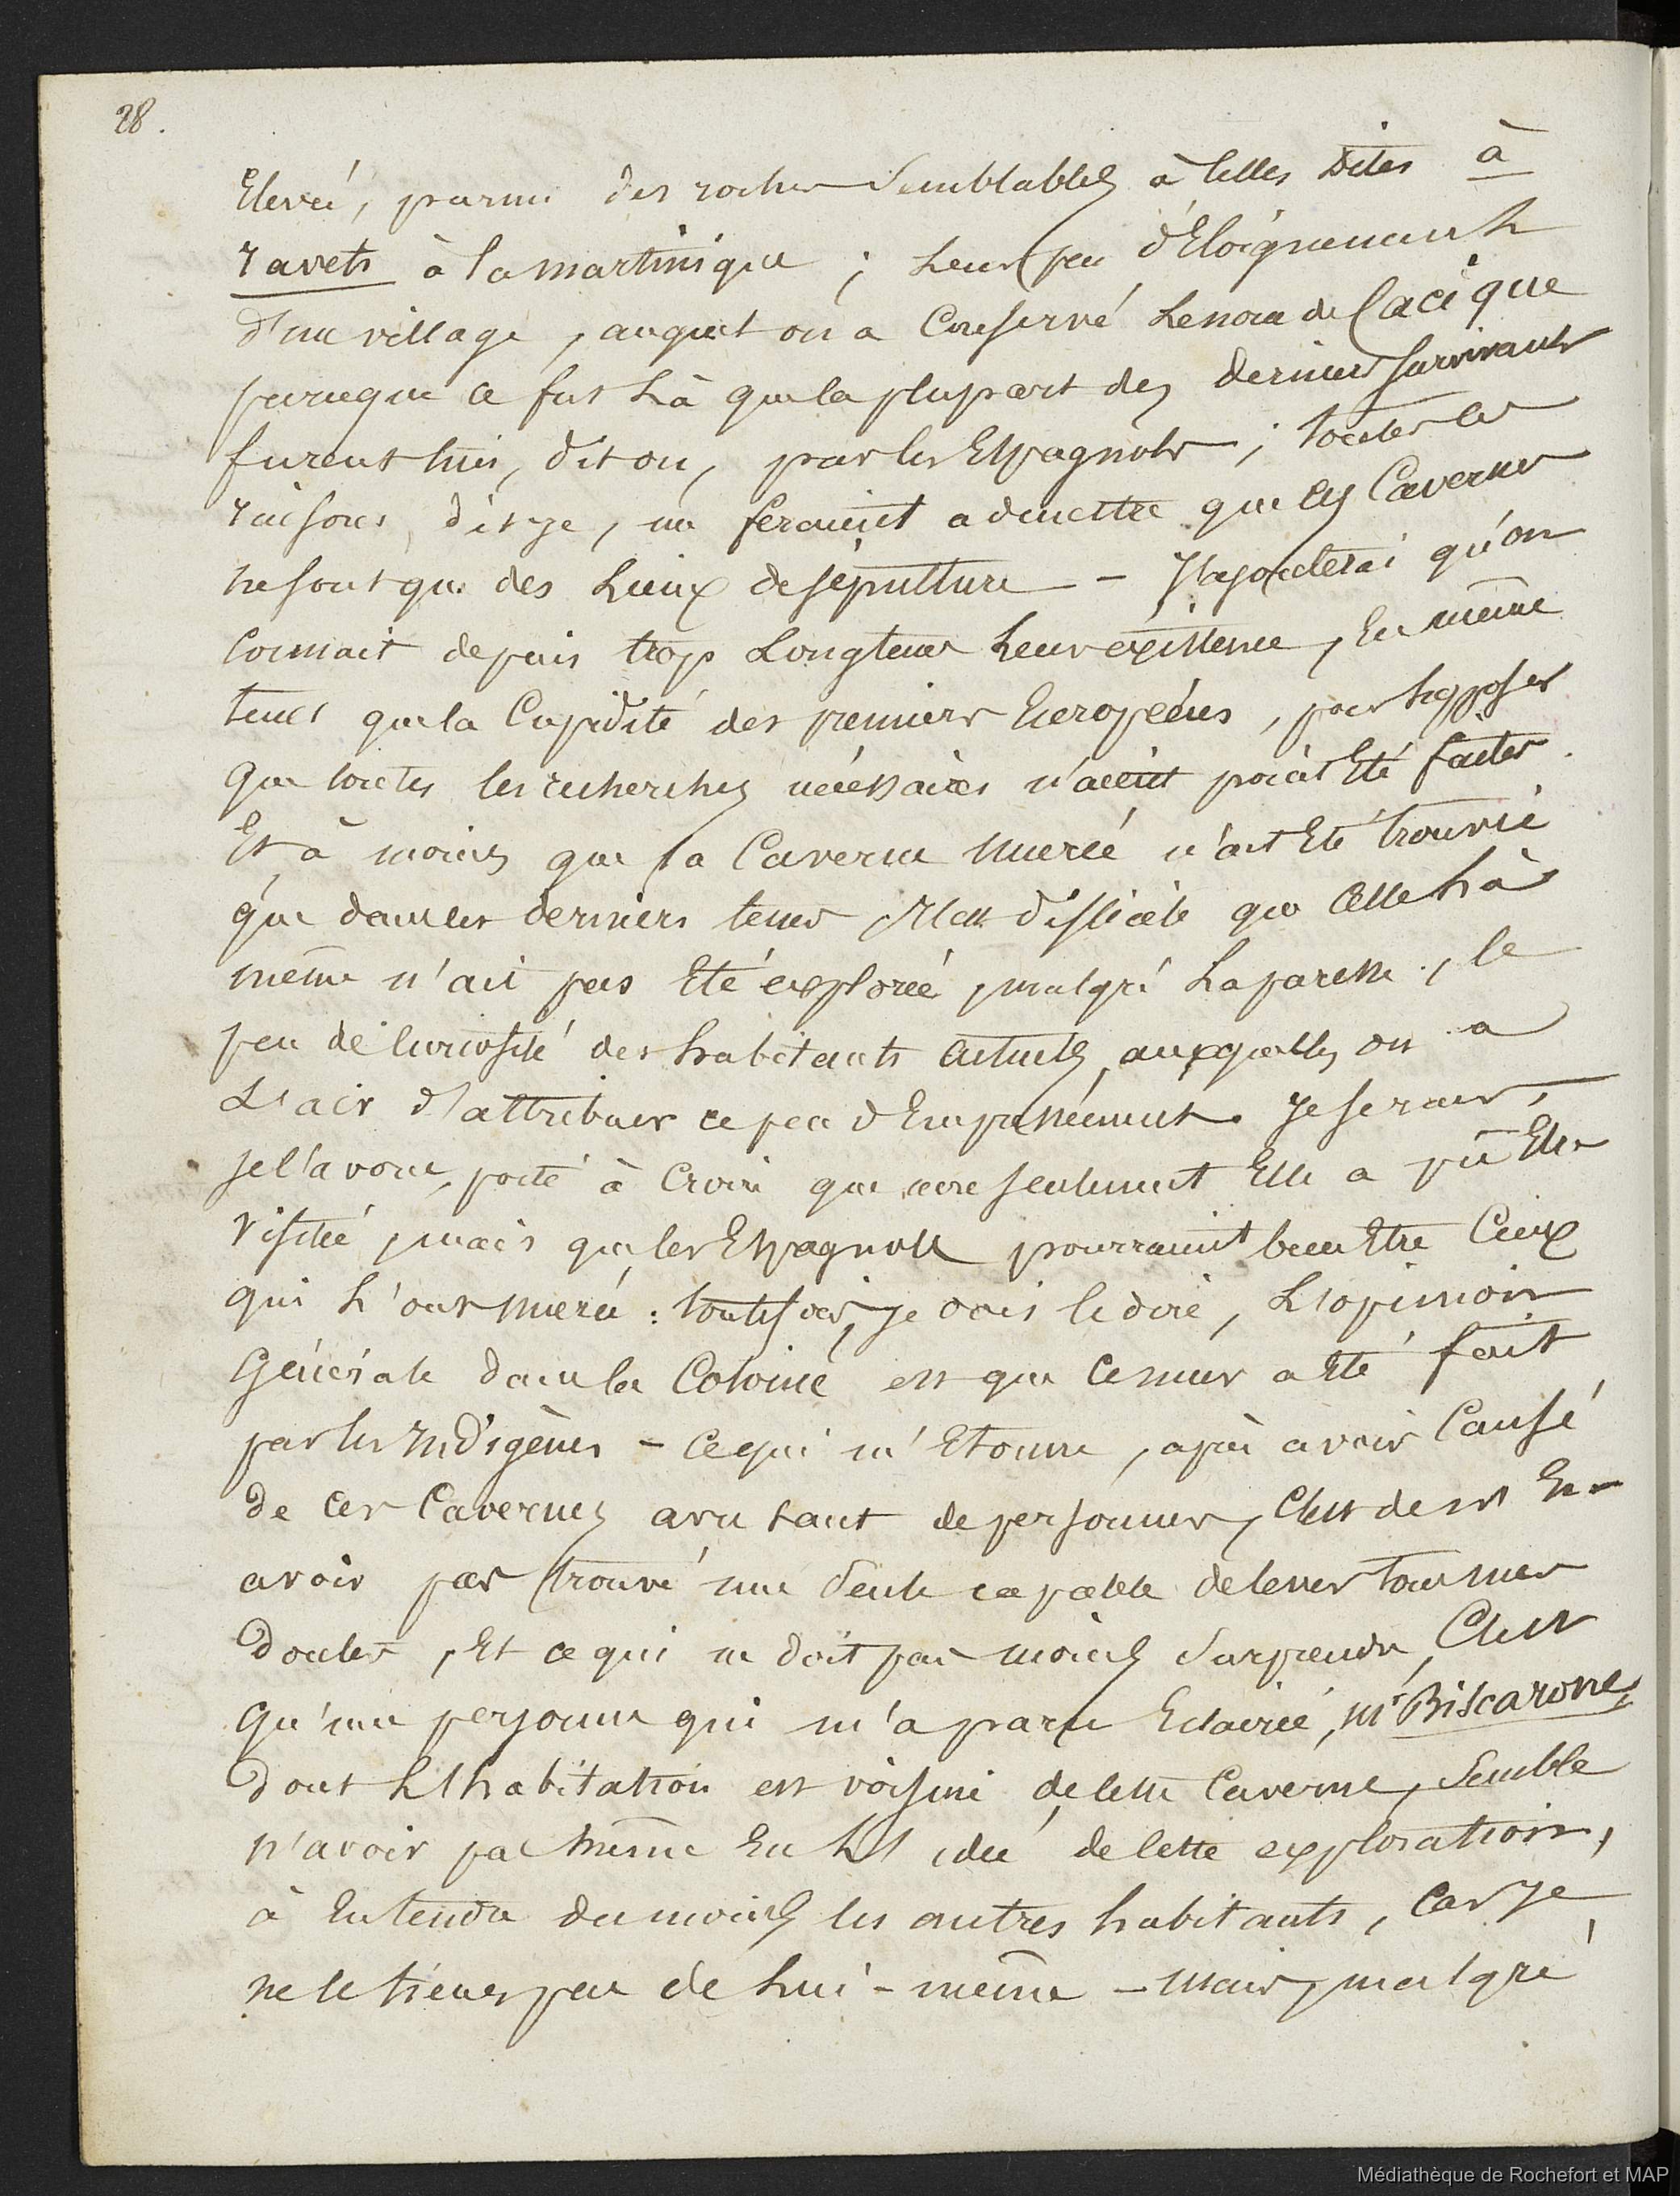 28.
Elevé, parmi des roches semblables à celles dites à
ravets à la martinique ; Leur peu d'Eloignement
d'un village, auquel on a Conservé Le nom de Cacique
parceque ce fut Là que la plupart des derniers survivants
furent tués, dit on, par les Espagnols ; toutes ces
raisons, dis-je, me feraient admettre que ces Cavernes
ne sont que des Lieux de sépulture - J'ajouterai qu'on
Connait depuis trop Longtems Leur existence, En même
tems que la Cupidité des premiers Européens, pour supposer
que toutes les recherches nécessaires n'aient point Eté faites.
Et à moins que la Caverne murée n'ait Eté trouvée
que dans les derniers tems il est difficile que Celle Là
même n'ait pas Eté explorée, malgré La paresse, le
peu de Curiosité des habitants actuels, auxquels on a
L'air d'attribuer ce peu d'Empressement. Je serais,
je l'avoue, porté à Croire que non seulement Elle a pû Etre
visitée, mais que les Espagnols pourraient bien Etre Ceux
qui L'ont murée : toutefois, je dois le dire, L'opinion
Générale dans la Colonie est que Ce mur a Eté fait
par les indigènes - Ce qui m'Etonne, après avoir Causé
de Ces Cavernes avec tant de personnes, C'est de n'En
avoir pas trouvé une seule capable de lever tous mes
doutes, Et ce qui ne doit pas moins surprendre, C'est
qu'une personne qui m'a paru Eclairée, Mr Biscarone,
dont L'habitation est voisine de cette Caverne, semble
n'avoir pas même Eu L'idée de Cette exploration,
à Entendre du moins les autres habitants, Car je
ne le tiens pas de Lui-même - Mais, malgré
Médiathèque de Rochefort et MAP